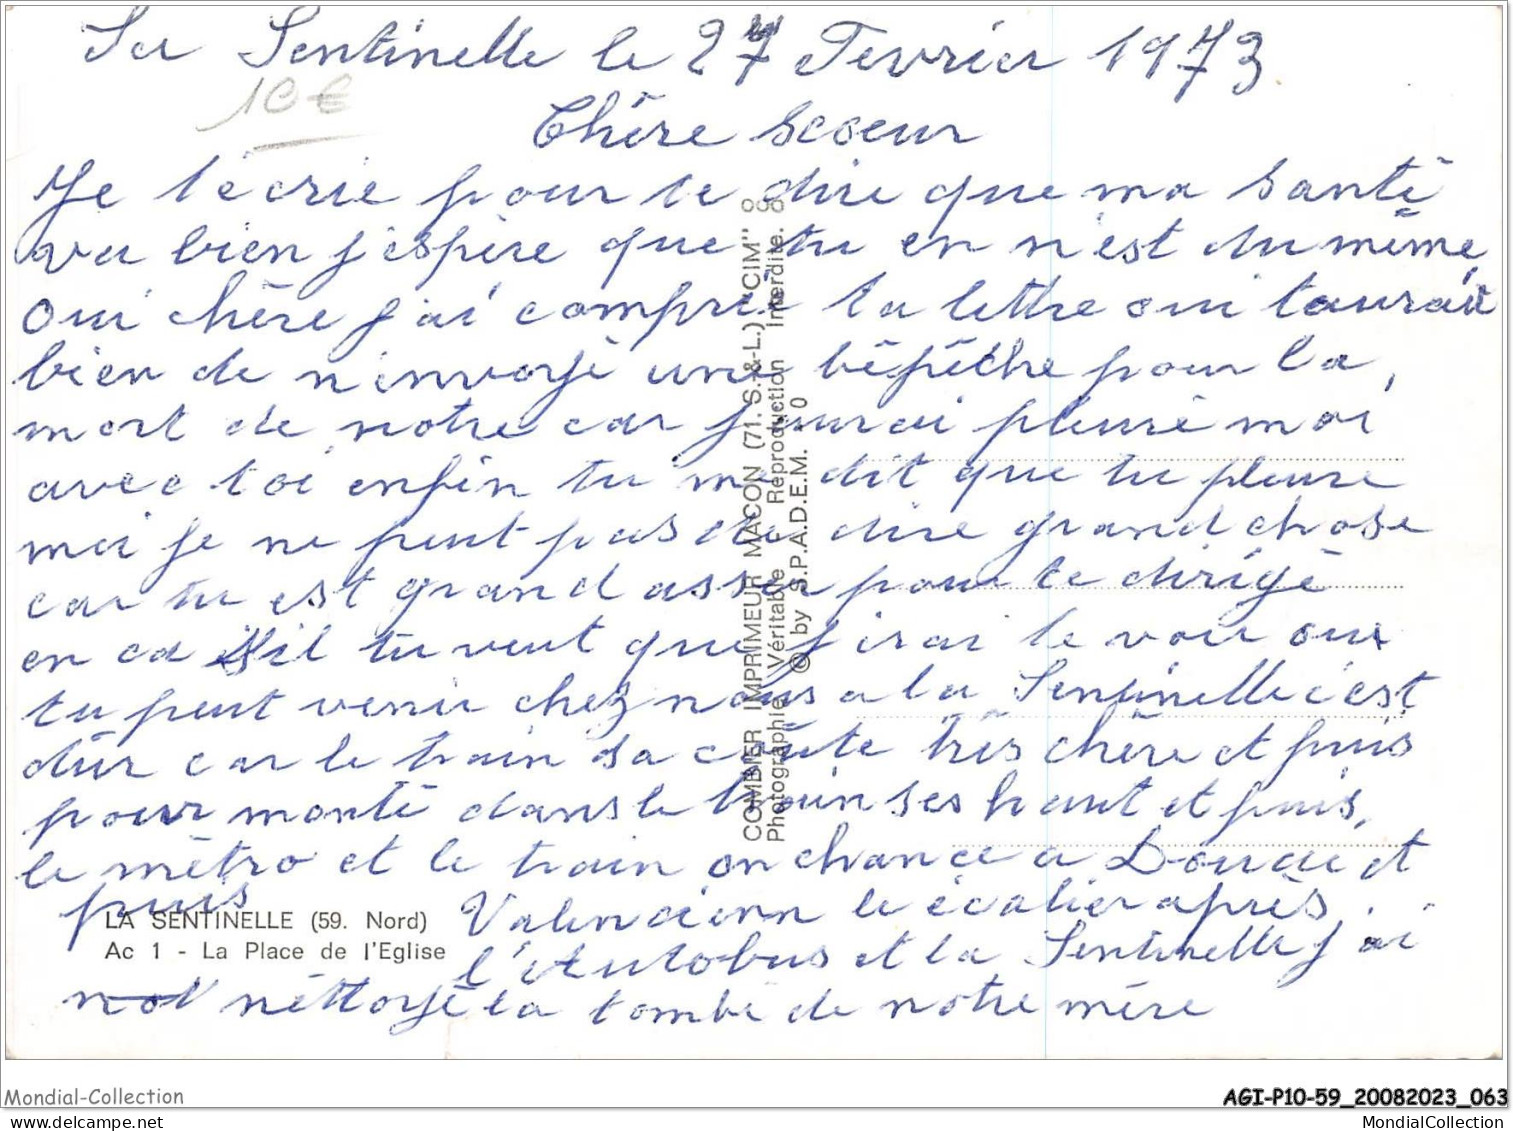 La Sentinelle le 27 Fevrier 1973
10 €
Chère Scoeur
Je t'écrie pour te dire que ma santé
va bien j'espère que tu en n'est du même,
Oui chère j'ai compris ta lettre oui taurait
bien de n'envoyé une dépêche pour la
mort de notre car j'aurai pleuré moi
avec toi enfin tu me dit que tu pleure
moi je ne peut pas te dire grand chose
car tu est grand asser pour te dirigé
en ca s'il tu veut que j'irai te voir oui
tu peut venir chez nous a la Sentinelle c'est
dûr car le train sa coûte très chère et puis
pour monté dans le train ses haut et puis,
le mètro et le train on chance a Douai et
puis Valencienn le écalier après
l'Autobus et la Sentinelle j'ai
néttoyé la tombe de notre mère
COMBIER IMPRIMEUR MACON (71. S.-&-L.) "CIM"
Photographie Véritable - Reproduction interdite.
© by S.P.A.D.E.M. - 0
LA SENTINELLE (59. Nord)
Ac 1 - La Place de l'Eglise
Mondial-Collection
AGI-P10-59_20082023_063
delcampe.net
MondialCollection